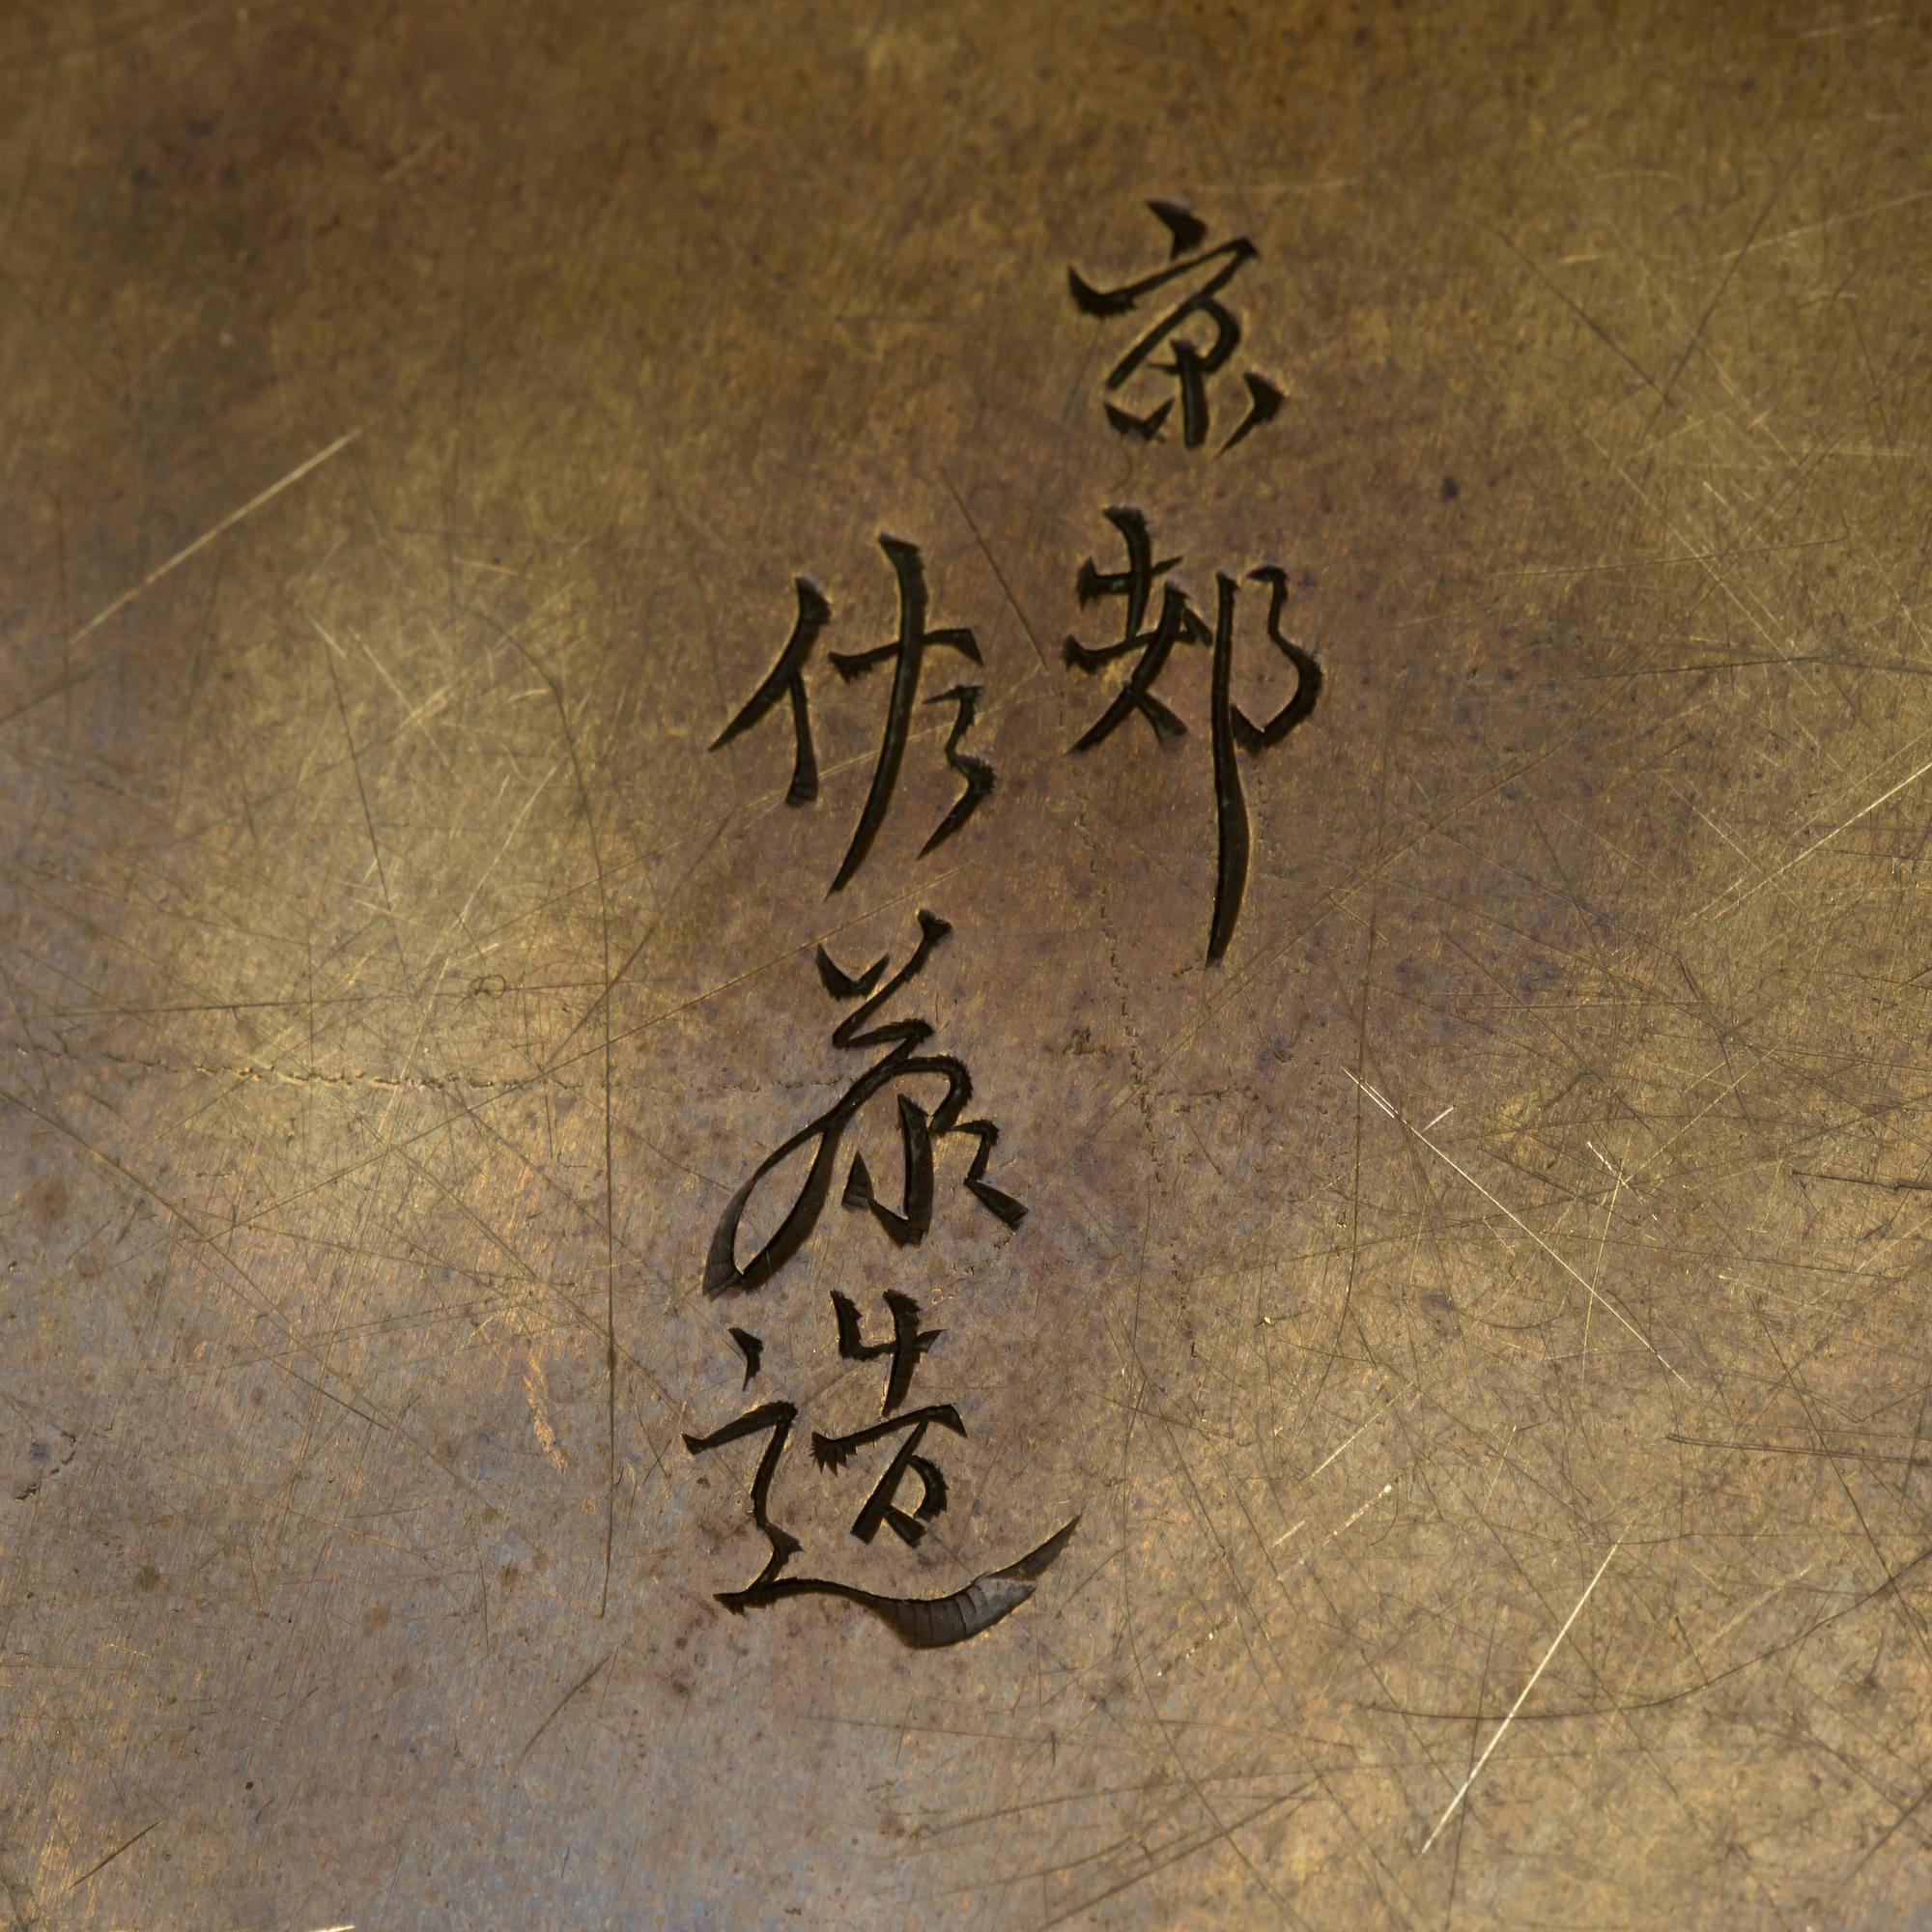 京都
佐兵造